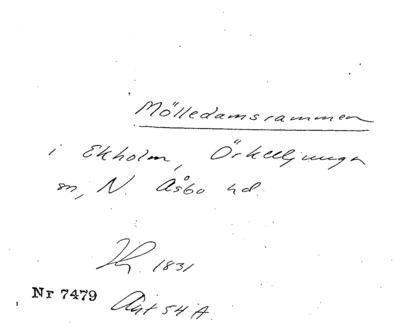 Mölledamsrammen
i Ekholm, Örkelljunga
sn, N. Åsbo hd.
1831
Nr 7479
54 A